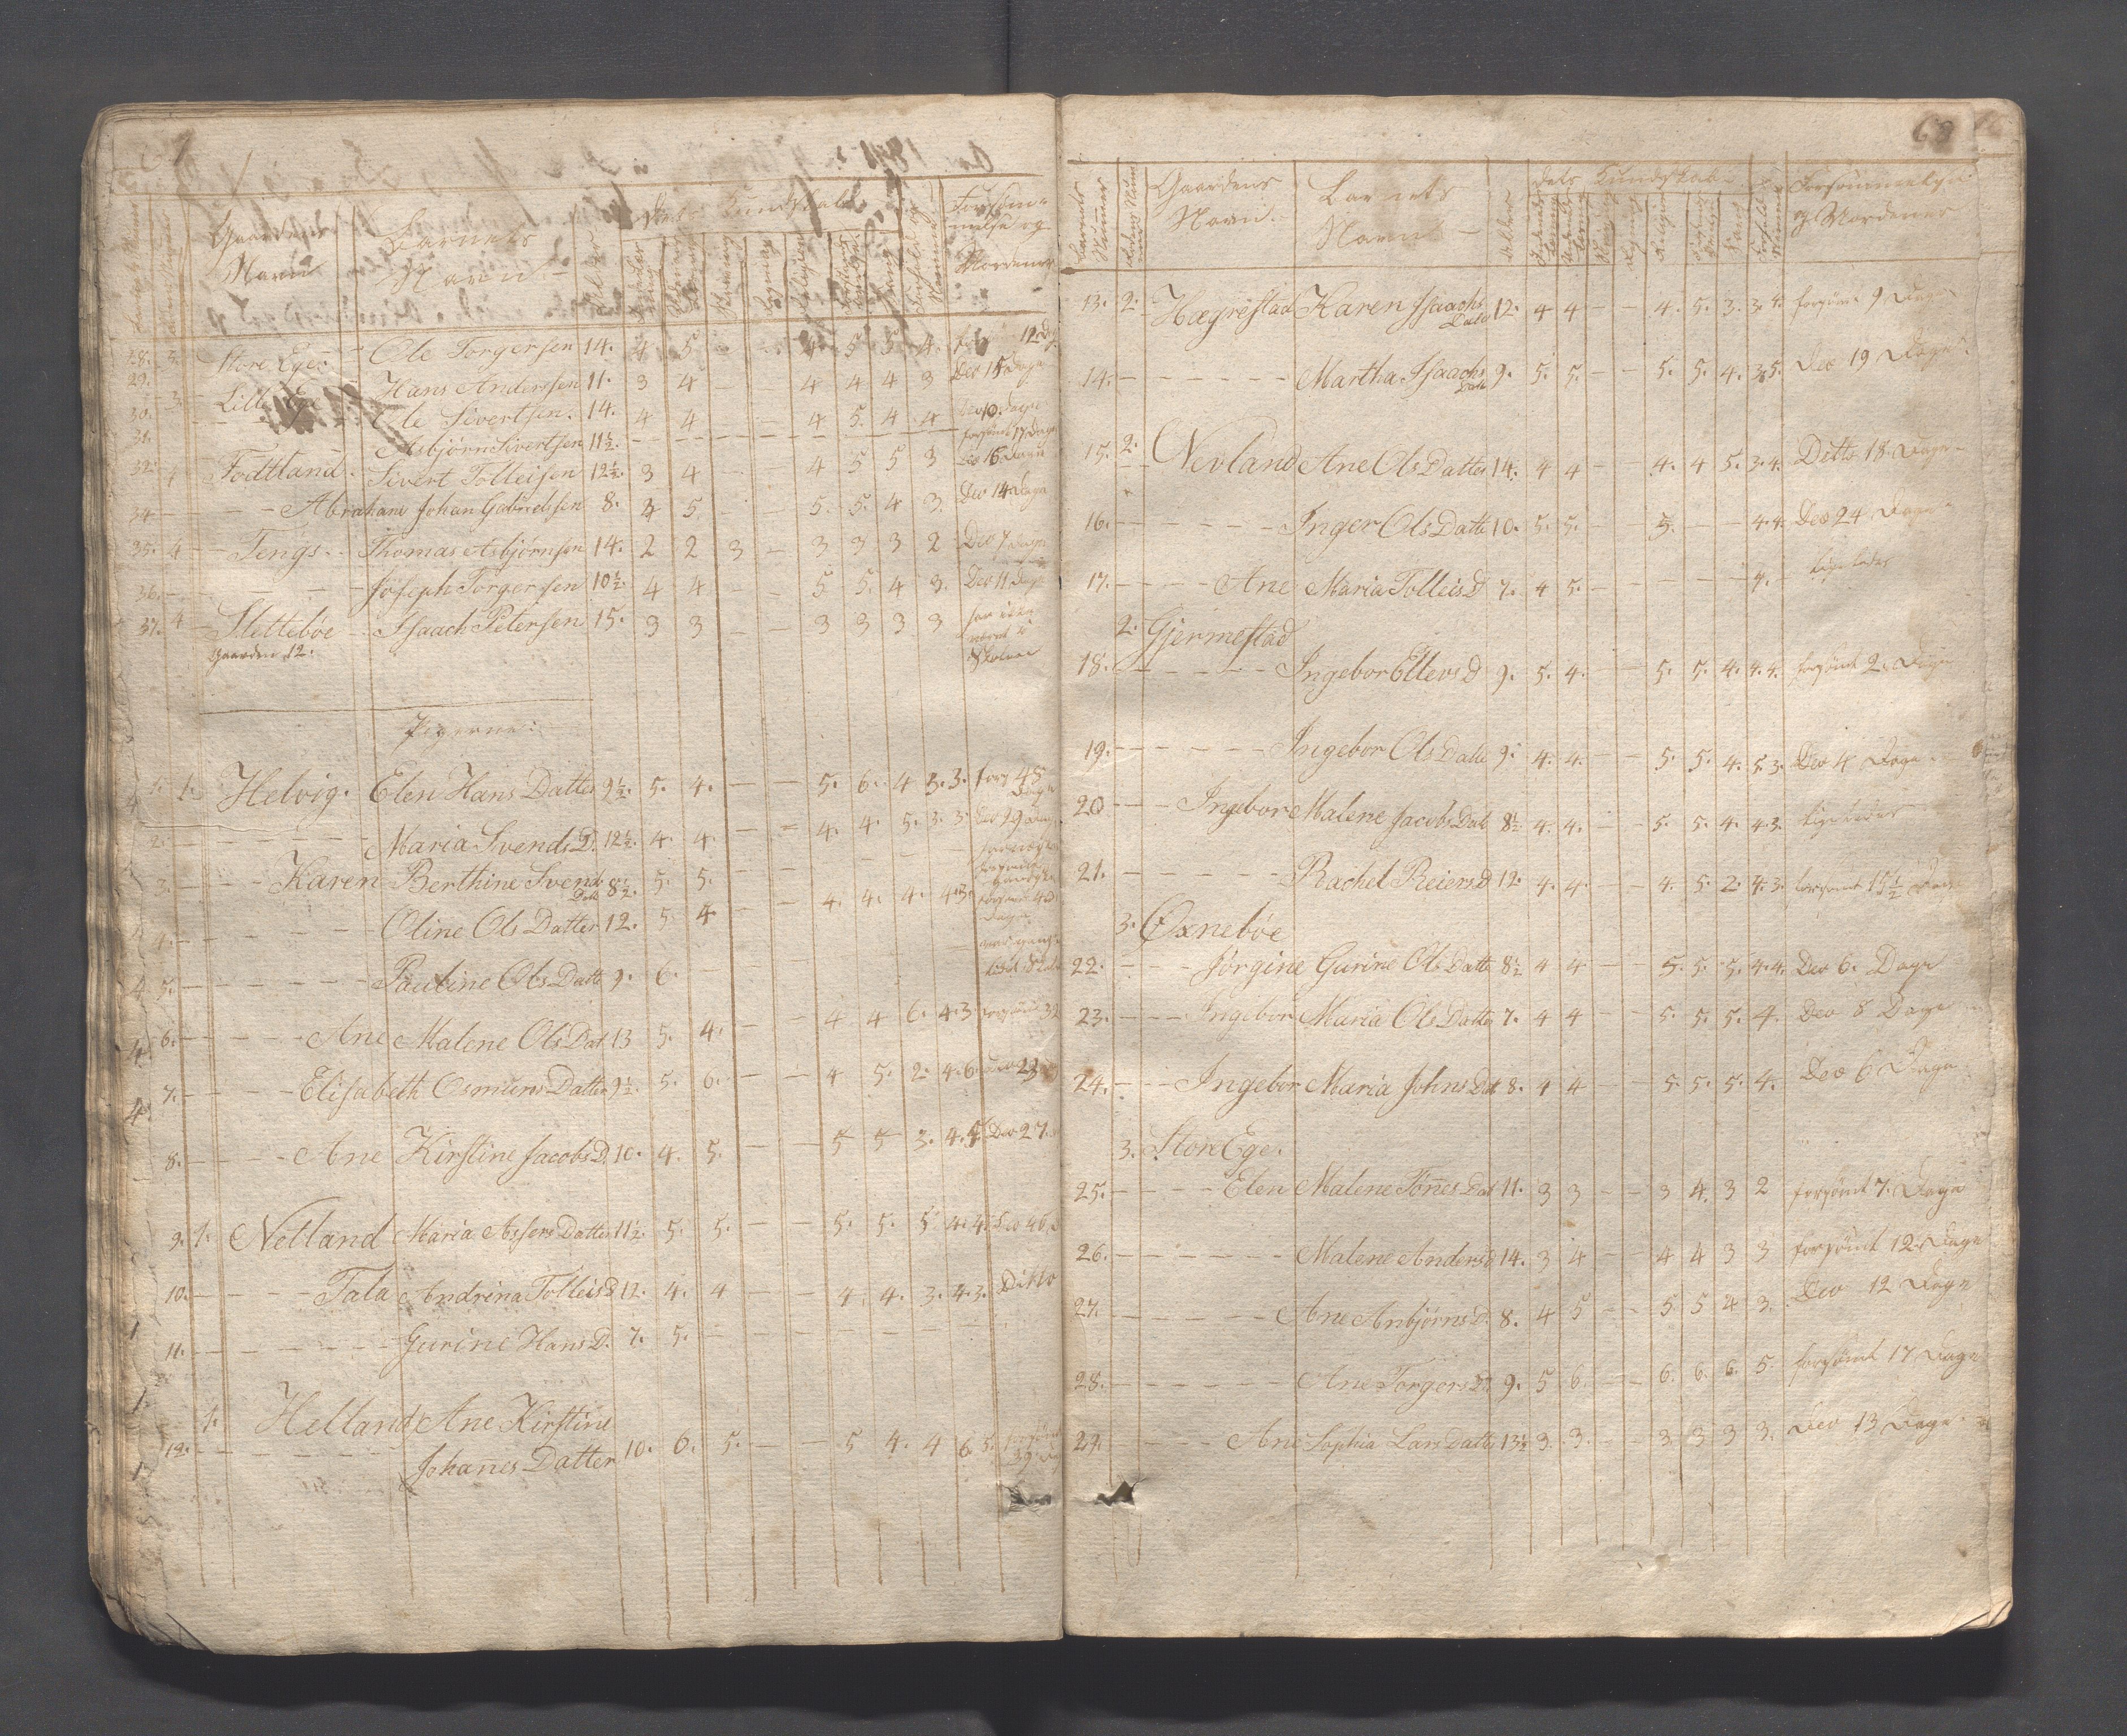 Gaardens Navn Barnets Navn Alder Dets Kundskab
28. 3. Store Ege Ole Torgersen 14. 4 5 - - 4 5 5 4. 12 Dage
29. 3. Lille Ege Hans Anderssen 11. 3 4 - - 4 4 4 3 Deo 15 Dage
30. Ole Sivertsen. 14. 4 4 - - 4 5. 4. 4 Deo 10. Dage
31. Asbjørn Sivertsen 11½. - - - - - - - - forsømt 17 Dage
32. 4 Fodtland. Sivert Tolleisen 12½. 3 4 - - 4 5 5 3 Deo 16. Dage
34 - - - Abraham Johan Gabrielsen 8. 4 5. - - 5. 5. 4 3. Deo 14 Dage
35. 4 - Tengs. - Thomas Asbjørnsen 14. 2 2 3 - 3 3 3 2 Deo 7 Dage
36. - - - - Joseph Torgersen 10½. 4 4 - - 5 5. 4 3. Deo 11 Dage
37. 4 - Slettebøe - Isaach Petersen 15. 3 3 - - 3 3 3 3 har ikke været i Skolen
Gaarden 12.
Pigerne:
1. 1. Helvig. Elen Hans Datter 9½. 5. 4. - - 5. 6. 4 3. 3. fors 48 Dage
2. - - - - Maria Svends D. 12½. 4. 4. - - 4. 4. 5. 3. 3. Deo 29 Dage
3. - - - Karen Berthine Svends Datt 8½. 5. 5. - -
4. - - - - Oline Ols Datter 12. 5. 4 - - 4. 4. 4. 4. 3.
5. - - - - Pauline Ols Datte 9. 6. - - - -
6. - - - - Ane Malene Ols Dat 13 5. 4. - - 4 4 6. 4. 3 forsømt 32
7. - - - Elisabeth Osmuns Datter 9½. 5. 6. - - 4 5. 2. 4. 6. Deo 23
8. - - - Ane Kirstine Jacobs D. 10. 4. 5. - - 5 5 3. 4. 5. Deo 27.
9. 1. Netland Maria Assers Datter 11½. 5. 5. - - 5. 5. 5. 4. 4. Deo 46
10. - - - Tala Andrina Tolleis D 12. 4. 4 - - 4. 4. 3. 4. 3. Ditto
11. - - - - Gurine Hans D. 7. 5. - - - -
1. Helland Ane Kirstine
12. - - - - Johanes Datter 10. 6. 5. - - 5 4. 4 6. 5.
68
Barnets Nummer Gaardens Navn. Barnets Navn - Alder Dets Kundskab Forsømmelse
13. 2. Hægrestad Karen Isaachs Datt 12. 4 4 - - 4. 5. 3. 3. 4. forsømt 9 Dage
14. - - - - Martha Isaachs Datt 9. 5. 5. - - 5. 5. 4. 3. 5. Deo 19 Dage.
15. 2. Nevland Ane Ols Datter 14. 4 4 - - 4. 4 5. 3. 4. Ditto 18. Dage
16. - - - - Inger Ols Datte 10. 5. 5. - - 5. - - 4. 4. Deo 24 Dage
17. - - - Ane Maria Tolleis D 7. 4 5. - - - - 4. - ligeledes
2. Gjermestad
18. - - - - Ingebor Ellevs D 9. 5. 4. - - 5. 5. 4. 4. 4. forsømt 2. Dage
19. - - - - Ingebor Ols Datte 9. 4. 4. - - 5. 5. 4. 5. 3. Deo 4 Dage
20 - - - Ingebor Malene Jacobs Datt 8½ 4. 4. - - 5. 5. 4. 4. 3. ligeledes
21. - - - - Rachel Reiers D 12. 4. 4. - - 4. 5. 2. 4. 3. forsømt 15½ Dage
3. Øxnebøe
22. - - - Jørgine Gurine Ols Datte 8½ 4 4 - - 5. 5. 5. 4. 4. Deo 6. Dage
23. - - - Ingebor Maria Ols Datter 7. 4 4 - - 5. 5. 5. 4. Deo 8 Dage
24. - - Ingebor Maria Johns Dat 8. 4 4 - - 5. 5. 5. 4. Deo 6 Dage
3. Store Ege.
25. - - - Elen Malene Tønes Dat 11. 3 3 - - 3 4. 3 2 forsømt 7. Dage
26. - - - - Malene Anders D 14. 3 4 - - 4 4 3 3 forsømt 12 Dage
27. - - - - Ane Anbjørns D. 8. 4 5 - - 5. 5 4 3. Deo 12 Dage
28. - - - - Ane Torgers D. 9. 5 6. - - 6. 6. 6. 5. forsømt 17 Dage
29. - - - Ane Sophia Lars Datte 13½. 3. 3. - - 3. 3 3 3. Deo 13 Dage